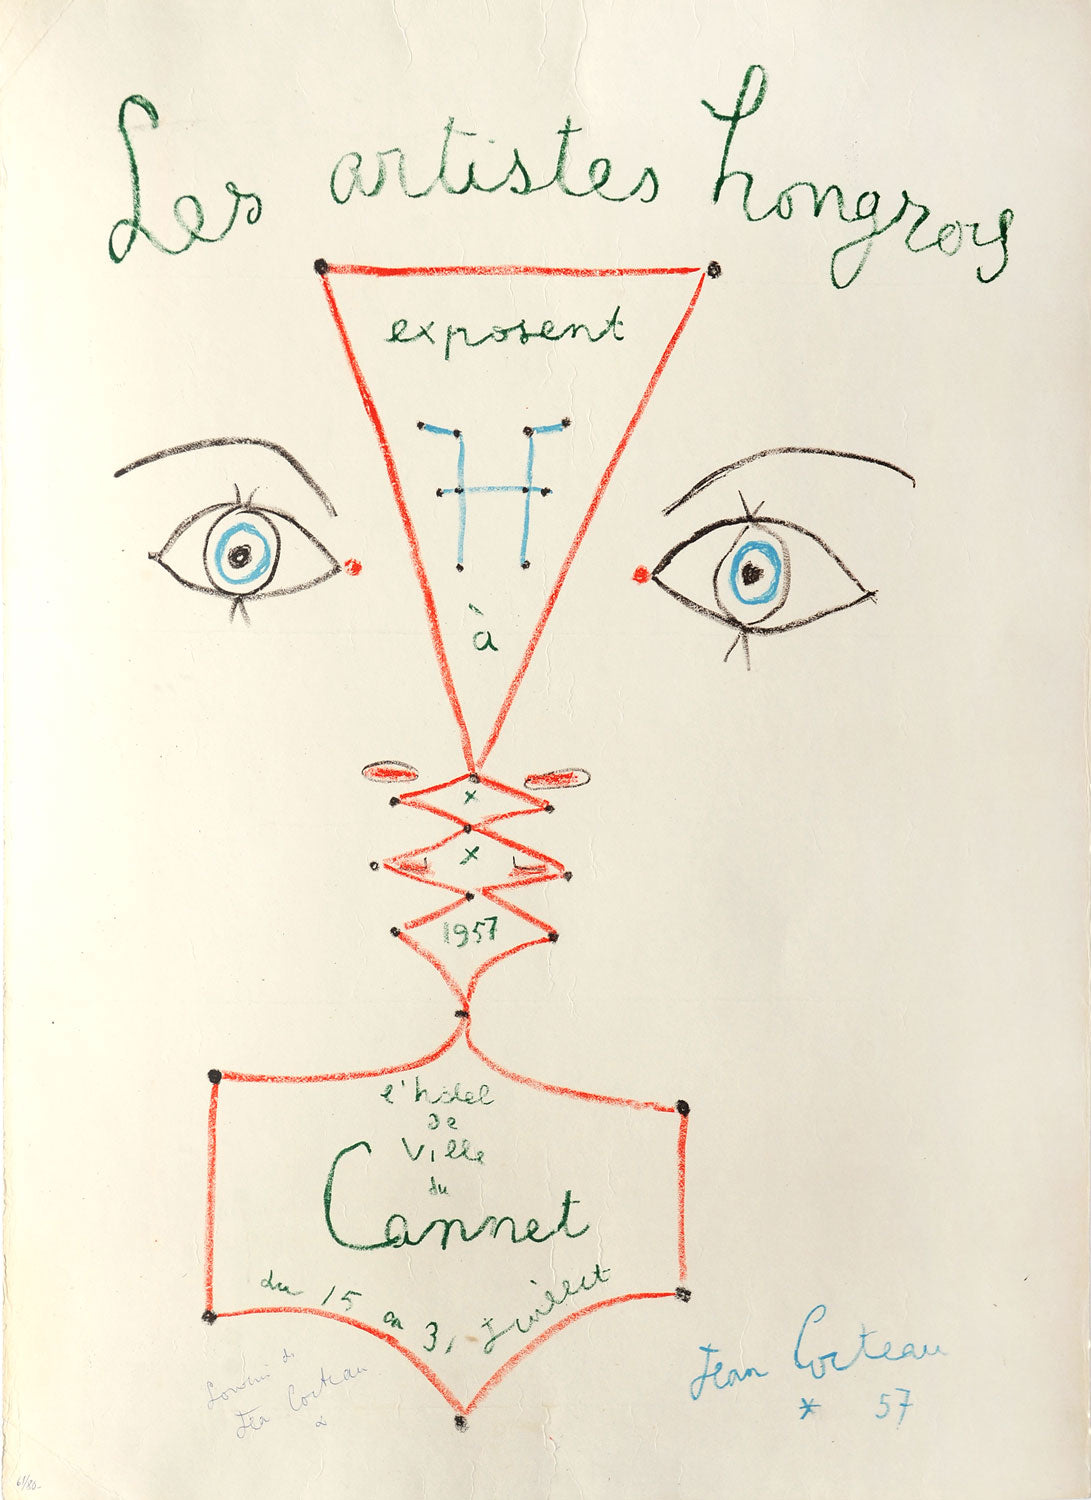 Les artistes hongrois
exposent
H
à
x
x
1957
l'hôtel
de
Ville
du
Cannet
du 15 au 31 Juillet
Souvenir de
Jean Cocteau
*
Jean Cocteau
* 57
61/80